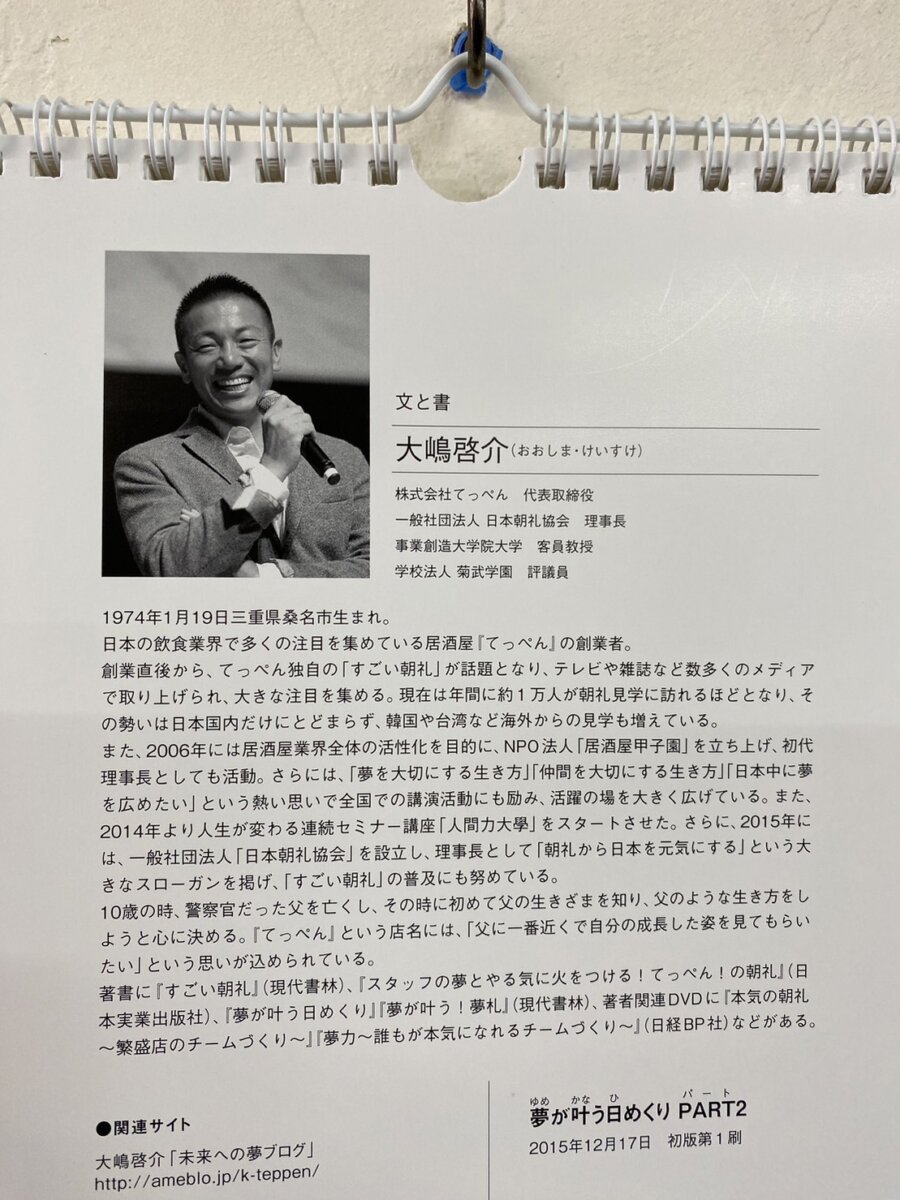 文と書
大嶋啓介(おおしま・けいすけ)
株式会社てっぺん 代表取締役
一般社団法人 日本朝礼協会 理事長
事業創造大学院大学 客員教授
学校法人 菊武学園 評議員
1974年1月19日三重県桑名市生まれ。
日本の飲食業界で多くの注目を集めている居酒屋『てっぺん』の創業者。
創業直後から、てっぺん独自の「すごい朝礼」が話題となり、テレビや雑誌など数多くのメディア
で取り上げられ、大きな注目を集める。現在は年間に約1万人が朝礼見学に訪れるほどとなり、そ
の勢いは日本国内だけにとどまらず、韓国や台湾など海外からの見学も増えている。
また、2006年には居酒屋業界全体の活性化を目的に、NPO法人「居酒屋甲子園」を立ち上げ、初代
理事長としても活動。さらには、「夢を大切にする生き方」「仲間を大切にする生き方」「日本中に夢
を広めたい」という熱い思いで全国での講演活動にも励み、活躍の場を大きく広げている。また、
2014年より人生が変わる連続セミナー講座「人間力大學」をスタートさせた。さらに、2015年に
は、一般社団法人「日本朝礼協会」を設立し、理事長として「朝礼から日本を元気にする」という大
きなスローガンを掲げ、「すごい朝礼」の普及にも努めている。
10歳の時、警察官だった父を亡くし、その時に初めて父の生きざまを知り、父のような生き方をし
ようと心に決める。『てっぺん』という店名には、「父に一番近くで自分の成長した姿を見てもらい
たい」という思いが込められている。
著書に『すごい朝礼』(現代書林)、『スタッフの夢とやる気に火をつける!てっぺん!の朝礼』(日
本実業出版社)、『夢が叶う日めくり』『夢が叶う!夢札』(現代書林)、著者関連DVDに『本気の朝礼
～繁盛店のチームづくり～』『夢力～誰もが本気になれるチームづくり～』(日経BP社)などがある。
●関連サイト
大嶋啓介「未来への夢ブログ」
http://ameblo.jp/k-teppen/
ゆめ かな ひ パート
夢が叶う日めくり PART2
2015年12月17日 初版第1刷